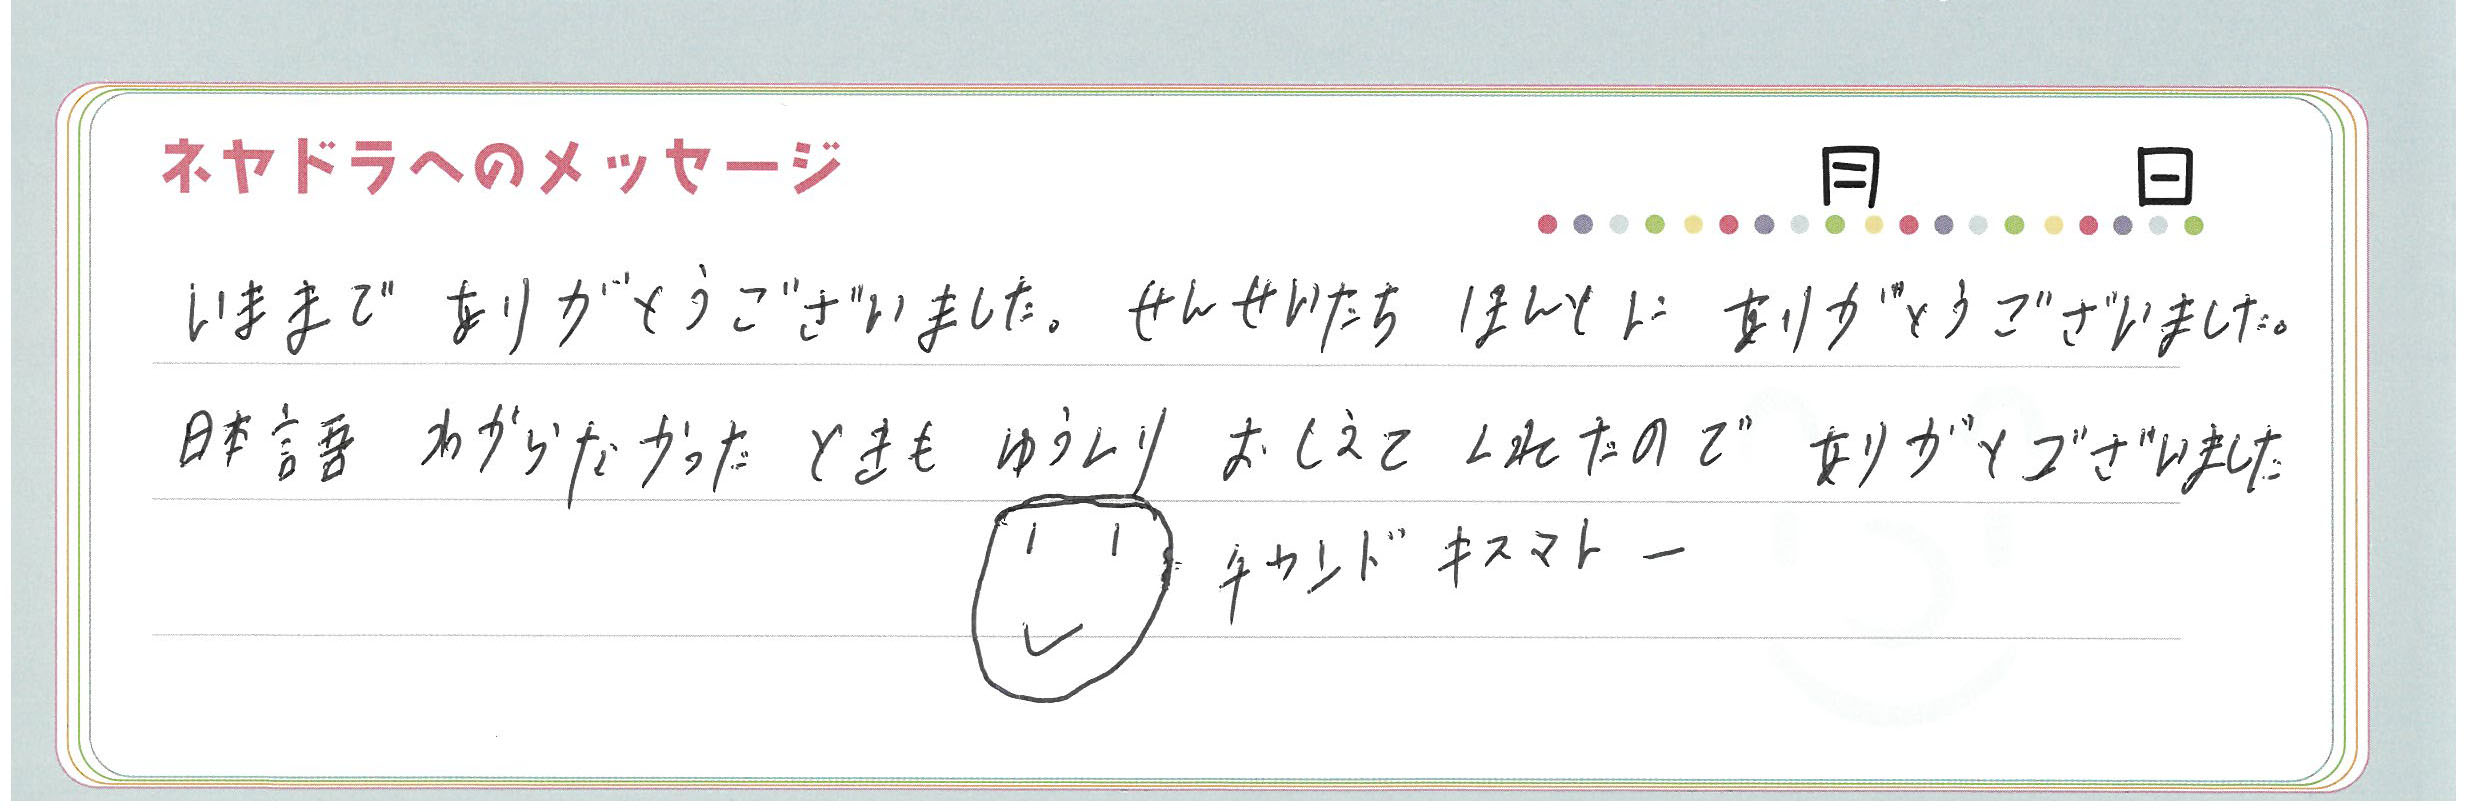 ネヤドラへのメッセージ
月 日
いままで ありがとうございました。 せんせいたち ほんとに ありがとうございました。
日本語 わからなかった ときも ゆうくり おしえて くれたので ありがとございました
チウンド キスマトー